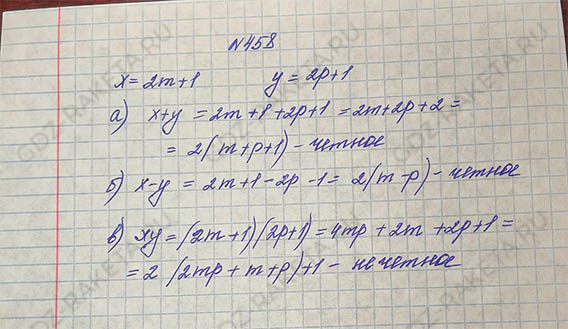 №458
x = 2m+1 y = 2p+1
а) x+y = 2m+1+2p+1 = 2m+2p+2 =
= 2(m+p+1) - четное
б) x-y = 2m+1-2p-1 = 2(m-p) - четное
в) xy = (2m+1)(2p+1) = 4mp+2m+2p+1 =
= 2(2mp+m+p)+1 - нечетное
GDZ-RAKETA.RU